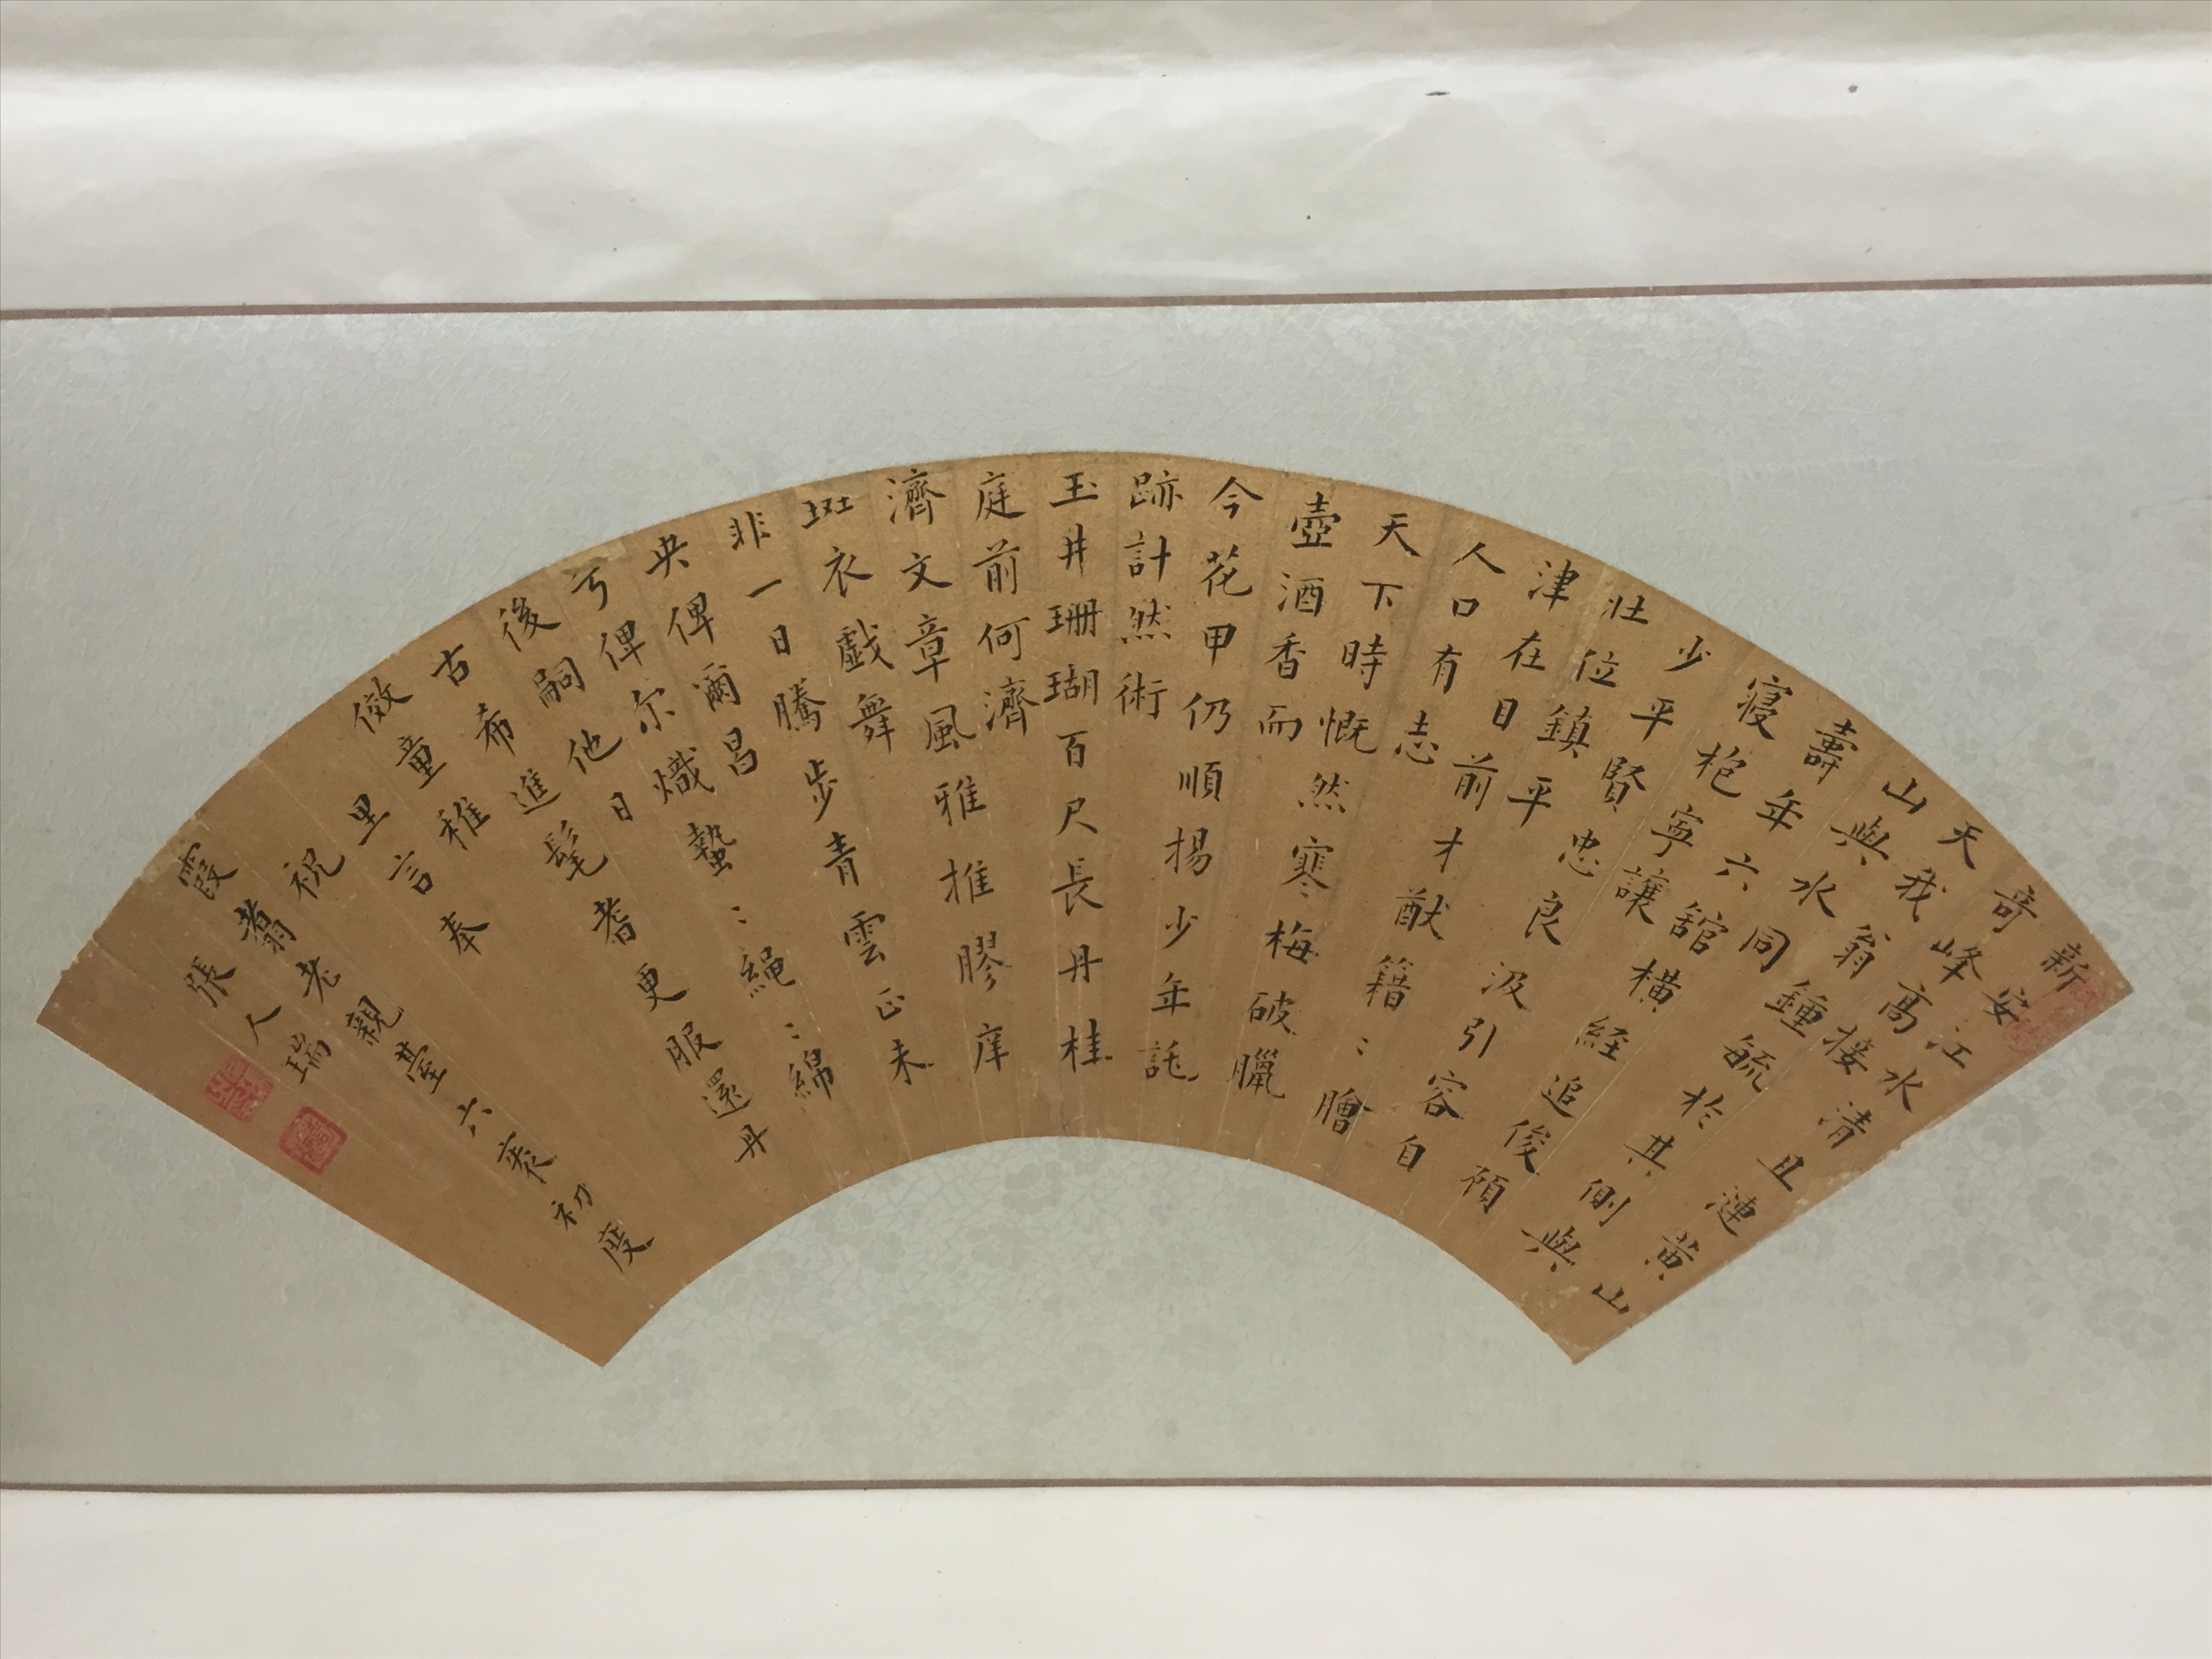 新安江水清且漣黃山
奇峰高接
天我翁鍾毓於其側與
山與水同
壽年六舘橫経追俊預
寢枹寧讓
少平賢忠良汲引容自
壯位鎮平
津在日前才猷籍〻膾
人口有志
天下時慨然寒梅破臘
壺酒香而
今花甲仍順揚少年託
跡計然術
玉井珊瑚百尺長丹桂
庭前何濟
濟文章風雅推膠庠
斑衣戲舞
非一日騰步青雲正未
央俾爾昌
亐俾尔熾蟄〻繩〻綿
後嗣他日
古希進髦耆更服還丹
童稚
里言奉
祝
霞翥老親臺六袠初度
張人瑞